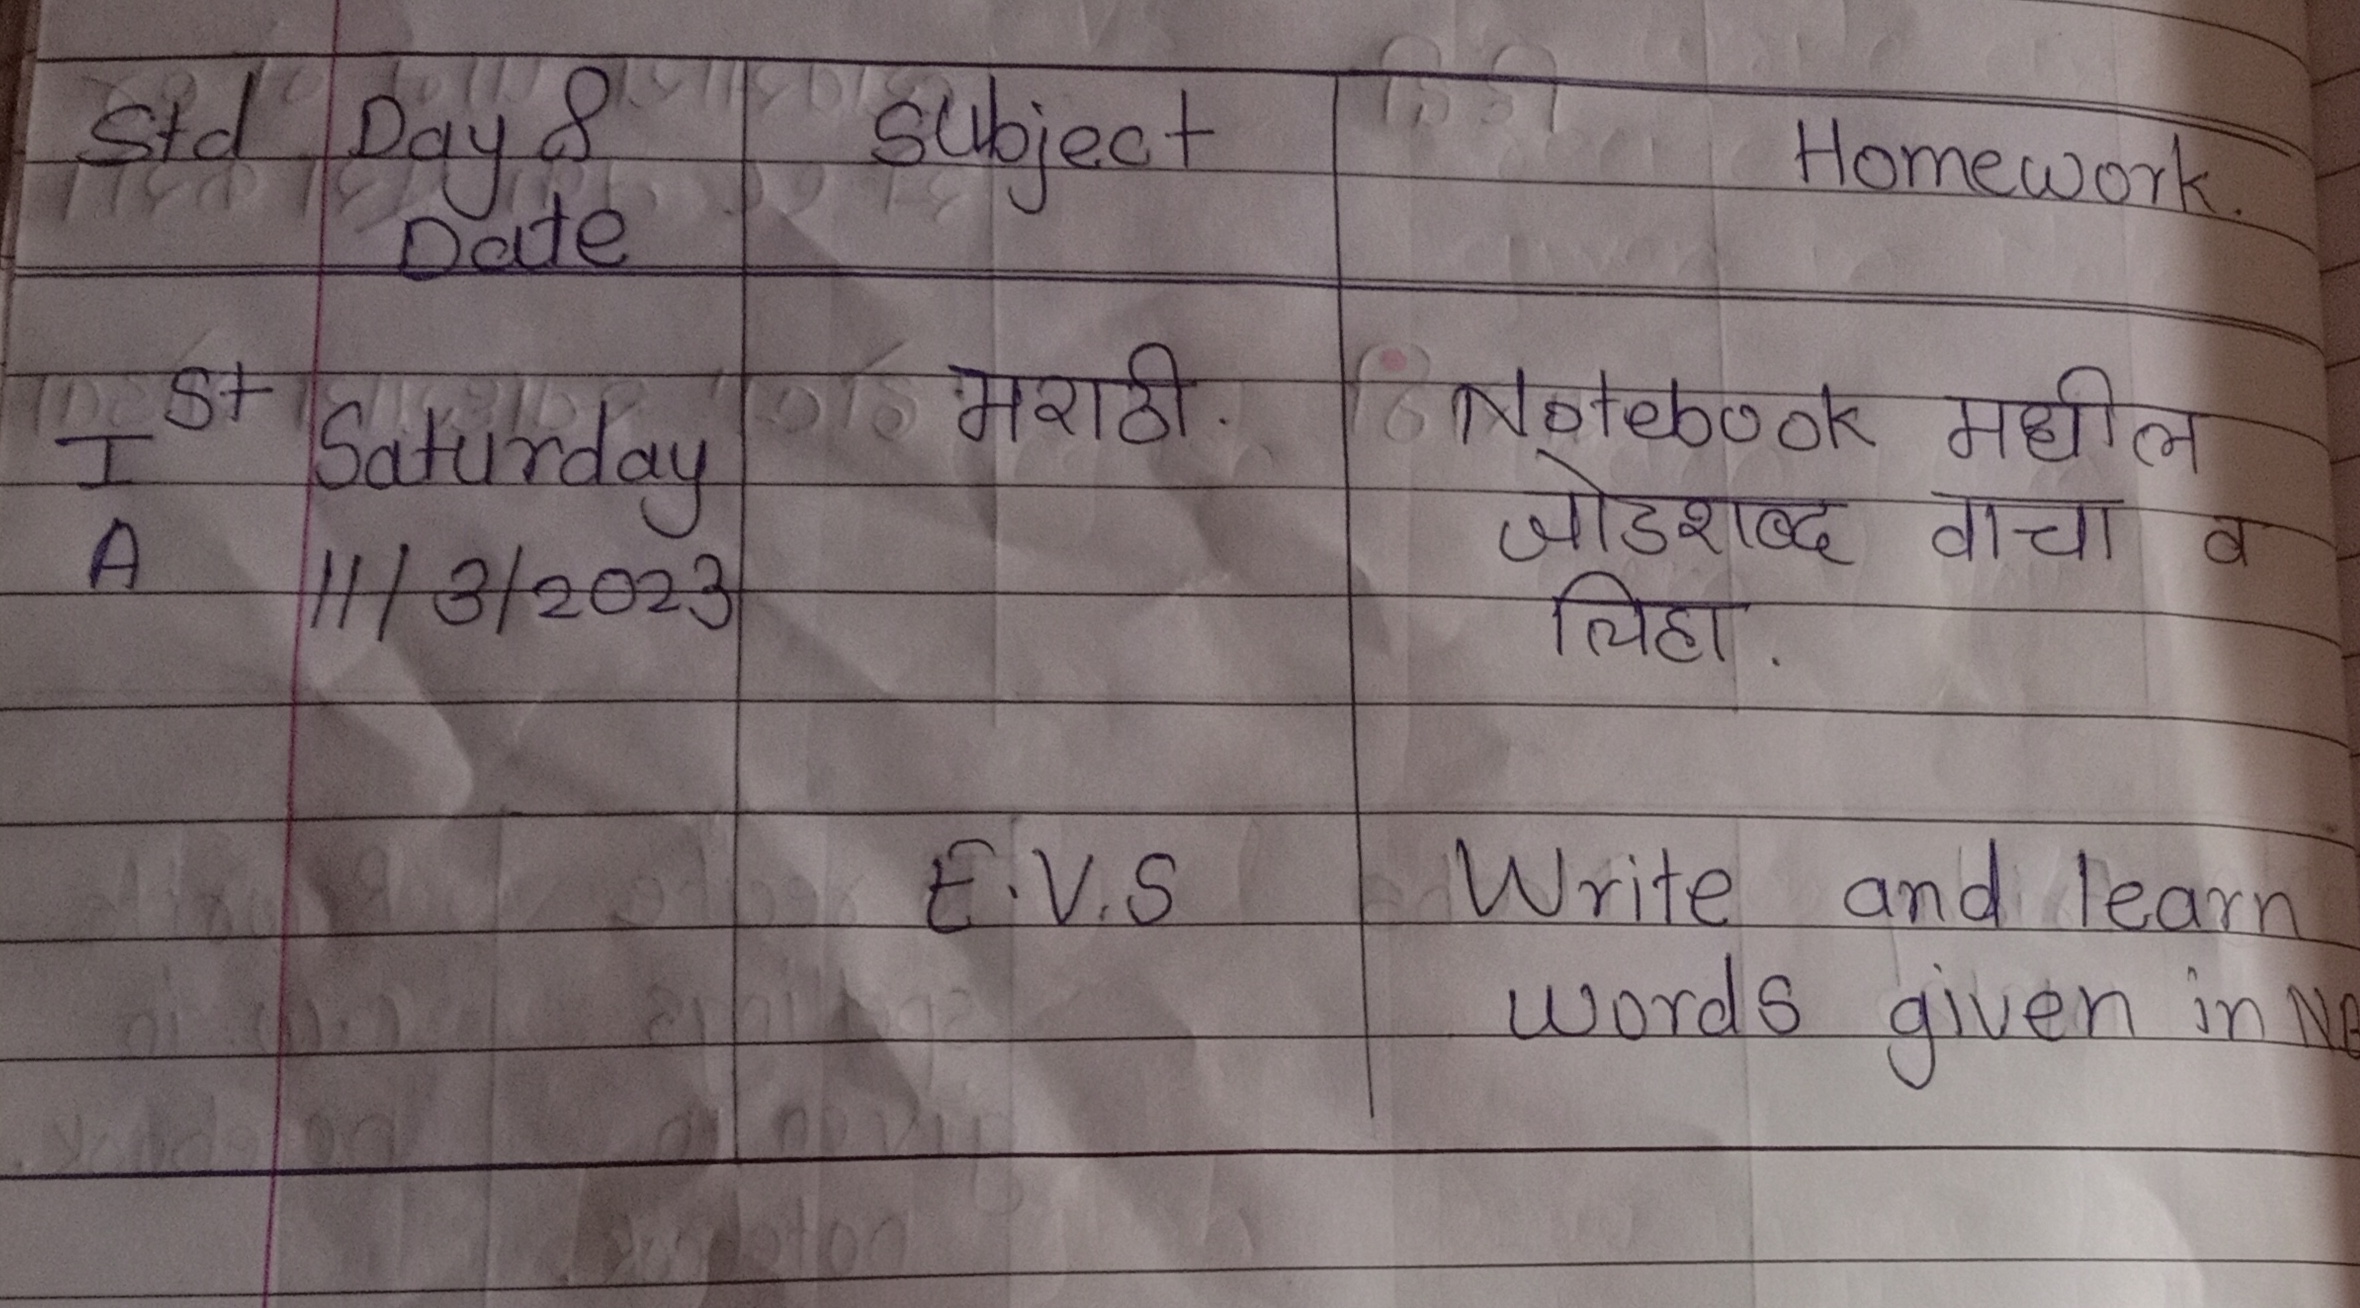 Std Day & Subject Homework.
Date
I st Saturday मराठी. Notebook मधील
A 11/3/2023 जोडशब्द वाचा व
लिहा.
E.V.S Write and learn
words given in NB